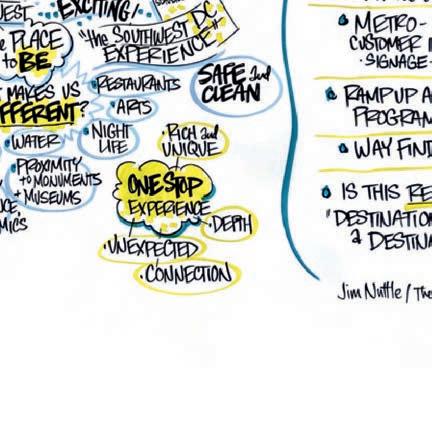 EXCITING!
DC
"the SOUTHWEST
EXPERIENCE"
PLACE
to BE
MAKES US
FFERENT?
• RESTAURANTS
• ARTS
SAFE and
CLEAN
• WATER
• NIGHT
LIFE
• RICH and
UNIQUE
• PROXIMITY
to MONUMENTS
+ MUSEUMS
ONE STOP
EXPERIENCE
• DEPTH
• UNEXPECTED
• CONNECTION
METRO-
CUSTOMER
• SIGNAGE
RAMP UP
PROGRAM
WAY FIND
IS THIS RE
"DESTINATION
DESTINA
Jim Nuttle / The